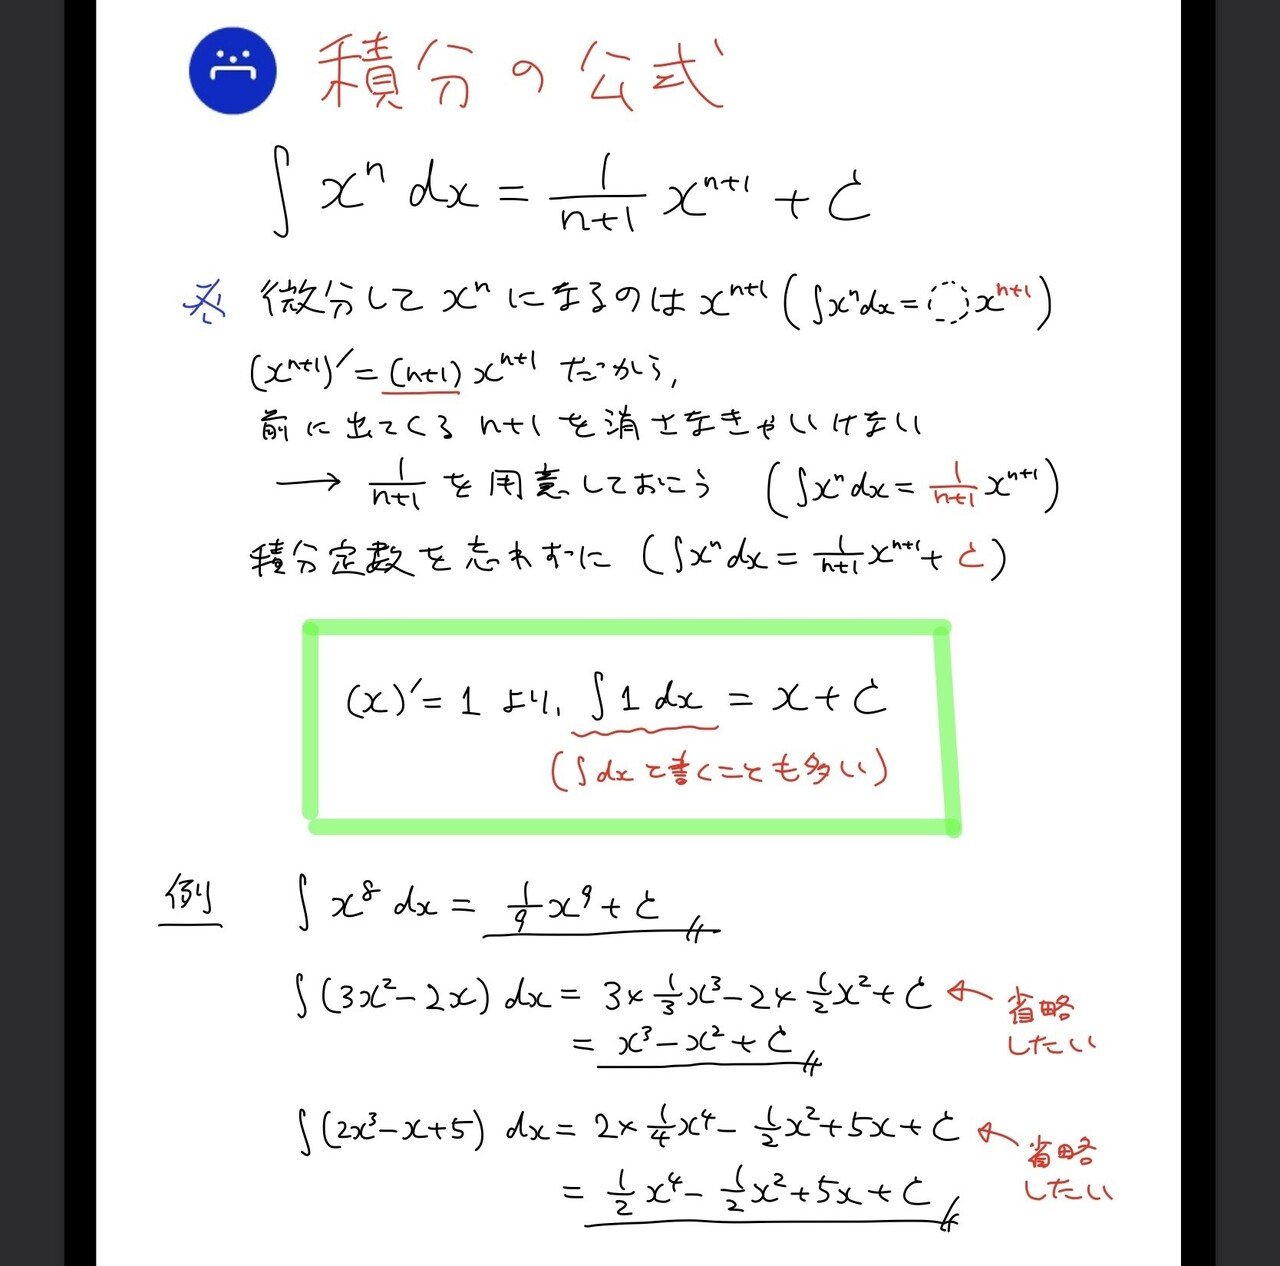 積分の公式
∫ xⁿ dx = 1/(n+1) xⁿ⁺¹ + C
※ 微分して xⁿ になるのは xⁿ⁺¹ (∫xⁿdx = ◌xⁿ⁺¹)
(xⁿ⁺¹)′ = (n+1) xⁿ⁺¹ だから,
前に出てくる n+1 を消さなきゃいけない
→ 1/(n+1) を用意しておこう (∫xⁿdx = 1/(n+1) xⁿ⁺¹)
積分定数を忘れずに (∫xⁿdx = 1/(n+1) xⁿ⁺¹ + C)
(x)′ = 1 より, ∫ 1 dx = x + C
(∫dx と書くことも多い)
例 ∫ x⁸ dx = 1/9 x⁹ + C
∫(3x² − 2x) dx = 3 × 1/3 x³ − 2 × 1/2 x² + C ← 省略したい
= x³ − x² + C
∫(2x³ − x + 5) dx = 2 × 1/4 x⁴ − 1/2 x² + 5x + C ← 省略したい
= 1/2 x⁴ − 1/2 x² + 5x + C